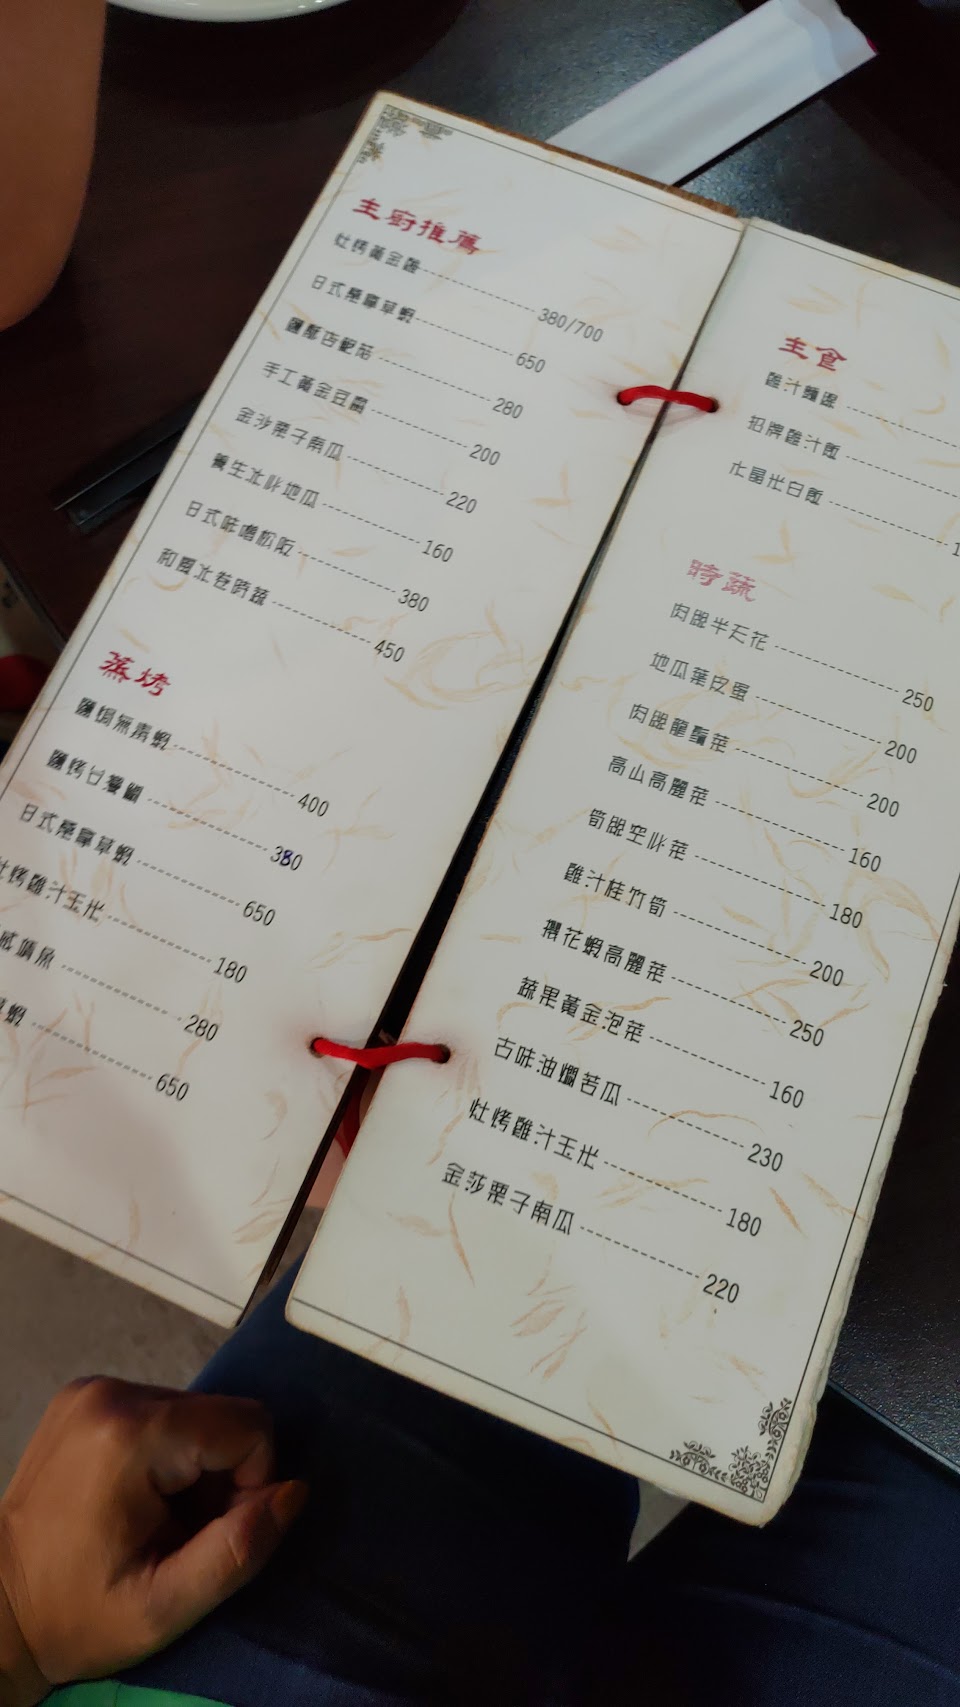 主廚推薦
灶烤黃金雞 380/700
日式極拿草蝦 650
鹽酥杏鮑菇 280
手工黃金豆腐 200
金沙栗子南瓜 220
養生冰心地瓜 160
日式味噌松阪 380
和風冰卷時蔬 450
蒸烤
鹽焗無毒蝦 400
鹽烤台灣鯛 380
日式極拿草蝦 650
灶烤雞汁玉米 180
魚 280
蝦 650
主食
雞汁麵線
招牌雞汁飯
水晶米白飯
時蔬
肉絲半天花 250
地瓜葉皮蛋 200
肉絲龍鬚菜 200
高山高麗菜 160
筍絲空心菜 180
雞汁桂竹筍 200
櫻花蝦高麗菜 250
蔬果黃金泡菜 160
古味油燜苦瓜 230
灶烤雞汁玉米 180
金莎栗子南瓜 220